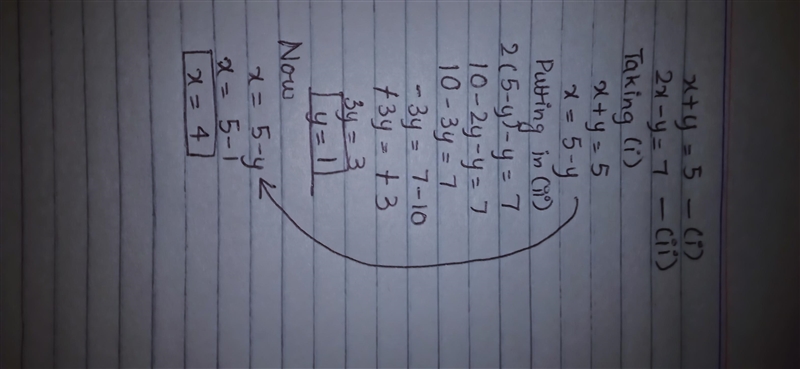 x+y = 5 — (i)
2x-y = 7 — (ii)
Taking (i)
x+y = 5
x = 5-y
Putting in (ii)
2(5-y)-y = 7
10-2y-y = 7
10-3y = 7
-3y = 7-10
+3y = +3
3y = 3
y = 1
Now
x = 5-y
x = 5-1
x = 4